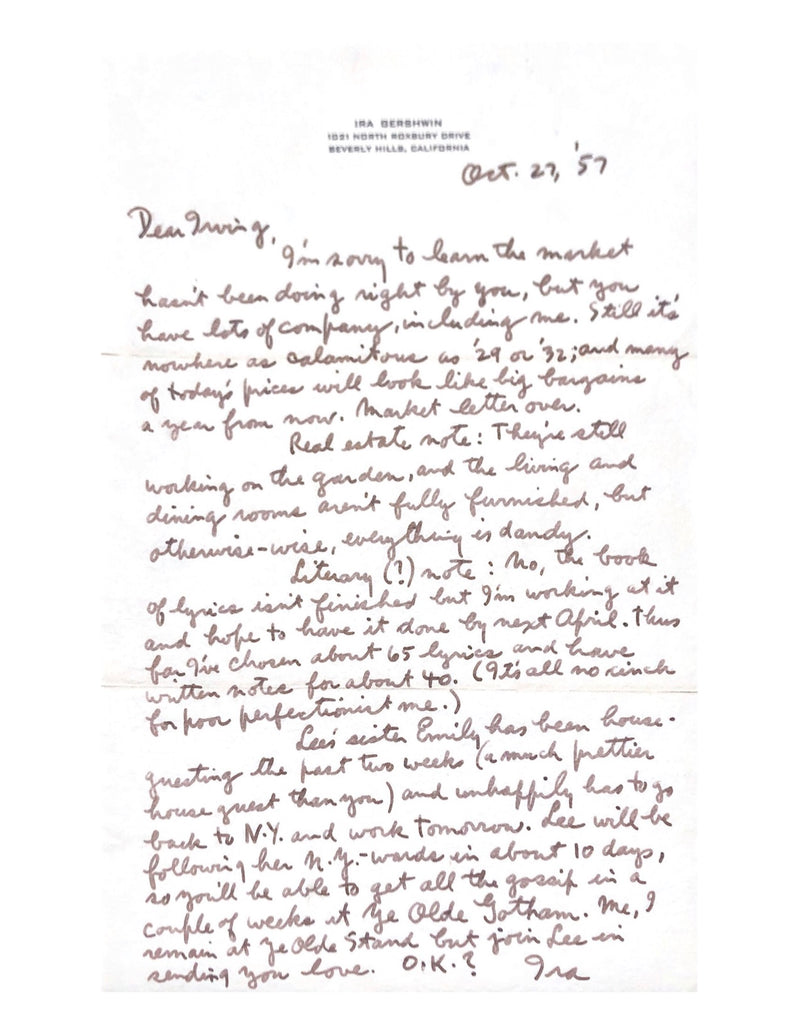 IRA GERSHWIN
1021 NORTH ROXBURY DRIVE
BEVERLY HILLS, CALIFORNIA
Oct. 27, '57
Dear Irving,
I'm sorry to learn the market
hasn't been doing right by you, but you
have lots of company, including me. Still it's
nowhere as calamitous as '29 or '32; and many
of today's prices will look like big bargains
a year from now. Market letter over.
Real estate note: They're still
working on the garden, and the living and
dining rooms aren't fully furnished, but
otherwise-wise, everything is dandy.
Literary (?) note: No, the book
of lyrics isn't finished but I'm working at it
and hope to have it done by next April. Thus
far I've chosen about 65 lyrics and have
written notes for about 40. (It's all no cinch
for poor perfectionist me.)
Lee's sister Emily has been house-
guesting the past two weeks (a much prettier
house guest than you) and unhappily has to go
back to N.Y. and work tomorrow. Lee will be
following her N.Y.-wards in about 10 days,
so you'll be able to get all the gossip in a
couple of weeks at Ye Olde Gotham. Me, I
remain at Ye Olde Stand but join Lee in
sending you love. O.K.? Ira